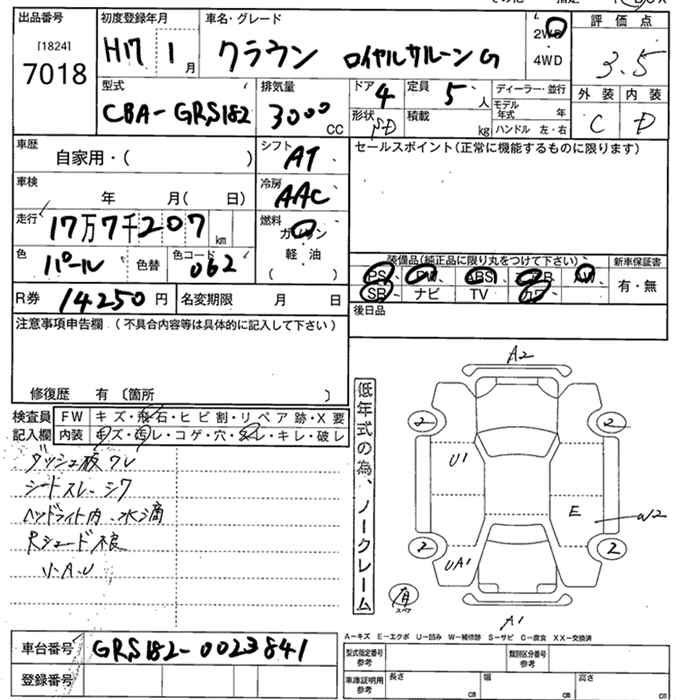 出品番号 初度登録年月 車名・グレード 2WD 評価点
[1824] H17 1月 クラウン ロイヤルサルーンG 4WD 3.5
7018
型式 排気量 ドア 定員 ディーラー・並行 外装 内装
CBA-GRS182 3000CC 4 5人 モデル年式 年 C D
形状 積載 kg ハンドル 左・右
SD
車歴 シフト セールスポイント(正常に機能するものに限ります)
自家用・( ) AT
車検 冷房
年 月( 日) AAC
走行 燃料
17万7千207km ガソリン
色 色コード 軽・油
パール 色替 062 ( )
装備品(純正品に限り丸をつけて下さい) 新車保証書
PS、PW、ABS、AB、AW 有・無
SR、ナビ TV カワ
R券 14250円 名変期限 月 日
後日品
注意事項申告欄(不具合内容等は具体的に記入して下さい)
修復歴 有〔箇所 〕
検査員 FW キズ・飛石・ヒビ割・リペア跡・X要
記入欄 内装 キズ・汚レ・コゲ・穴・スレ・キレ・破レ
ダッシュ板ワレ
シートスレ、シワ
ヘッドライト内、水滴
Rシェード不良
リ・A・U
低年式の為、ノークレーム
A2
2 2
U1
E W2
2 2
UA1
有
スペア
A1
A-キズ E-エクボ U-凹み W-補修跡 S-サビ C-腐食 XX-交換済
車台番号 GRS182-0023841
型式指定番号 参考 類別区分番号 参考
登録番号
車庫証明用 参考 長さ cm 幅 cm 高さ cm